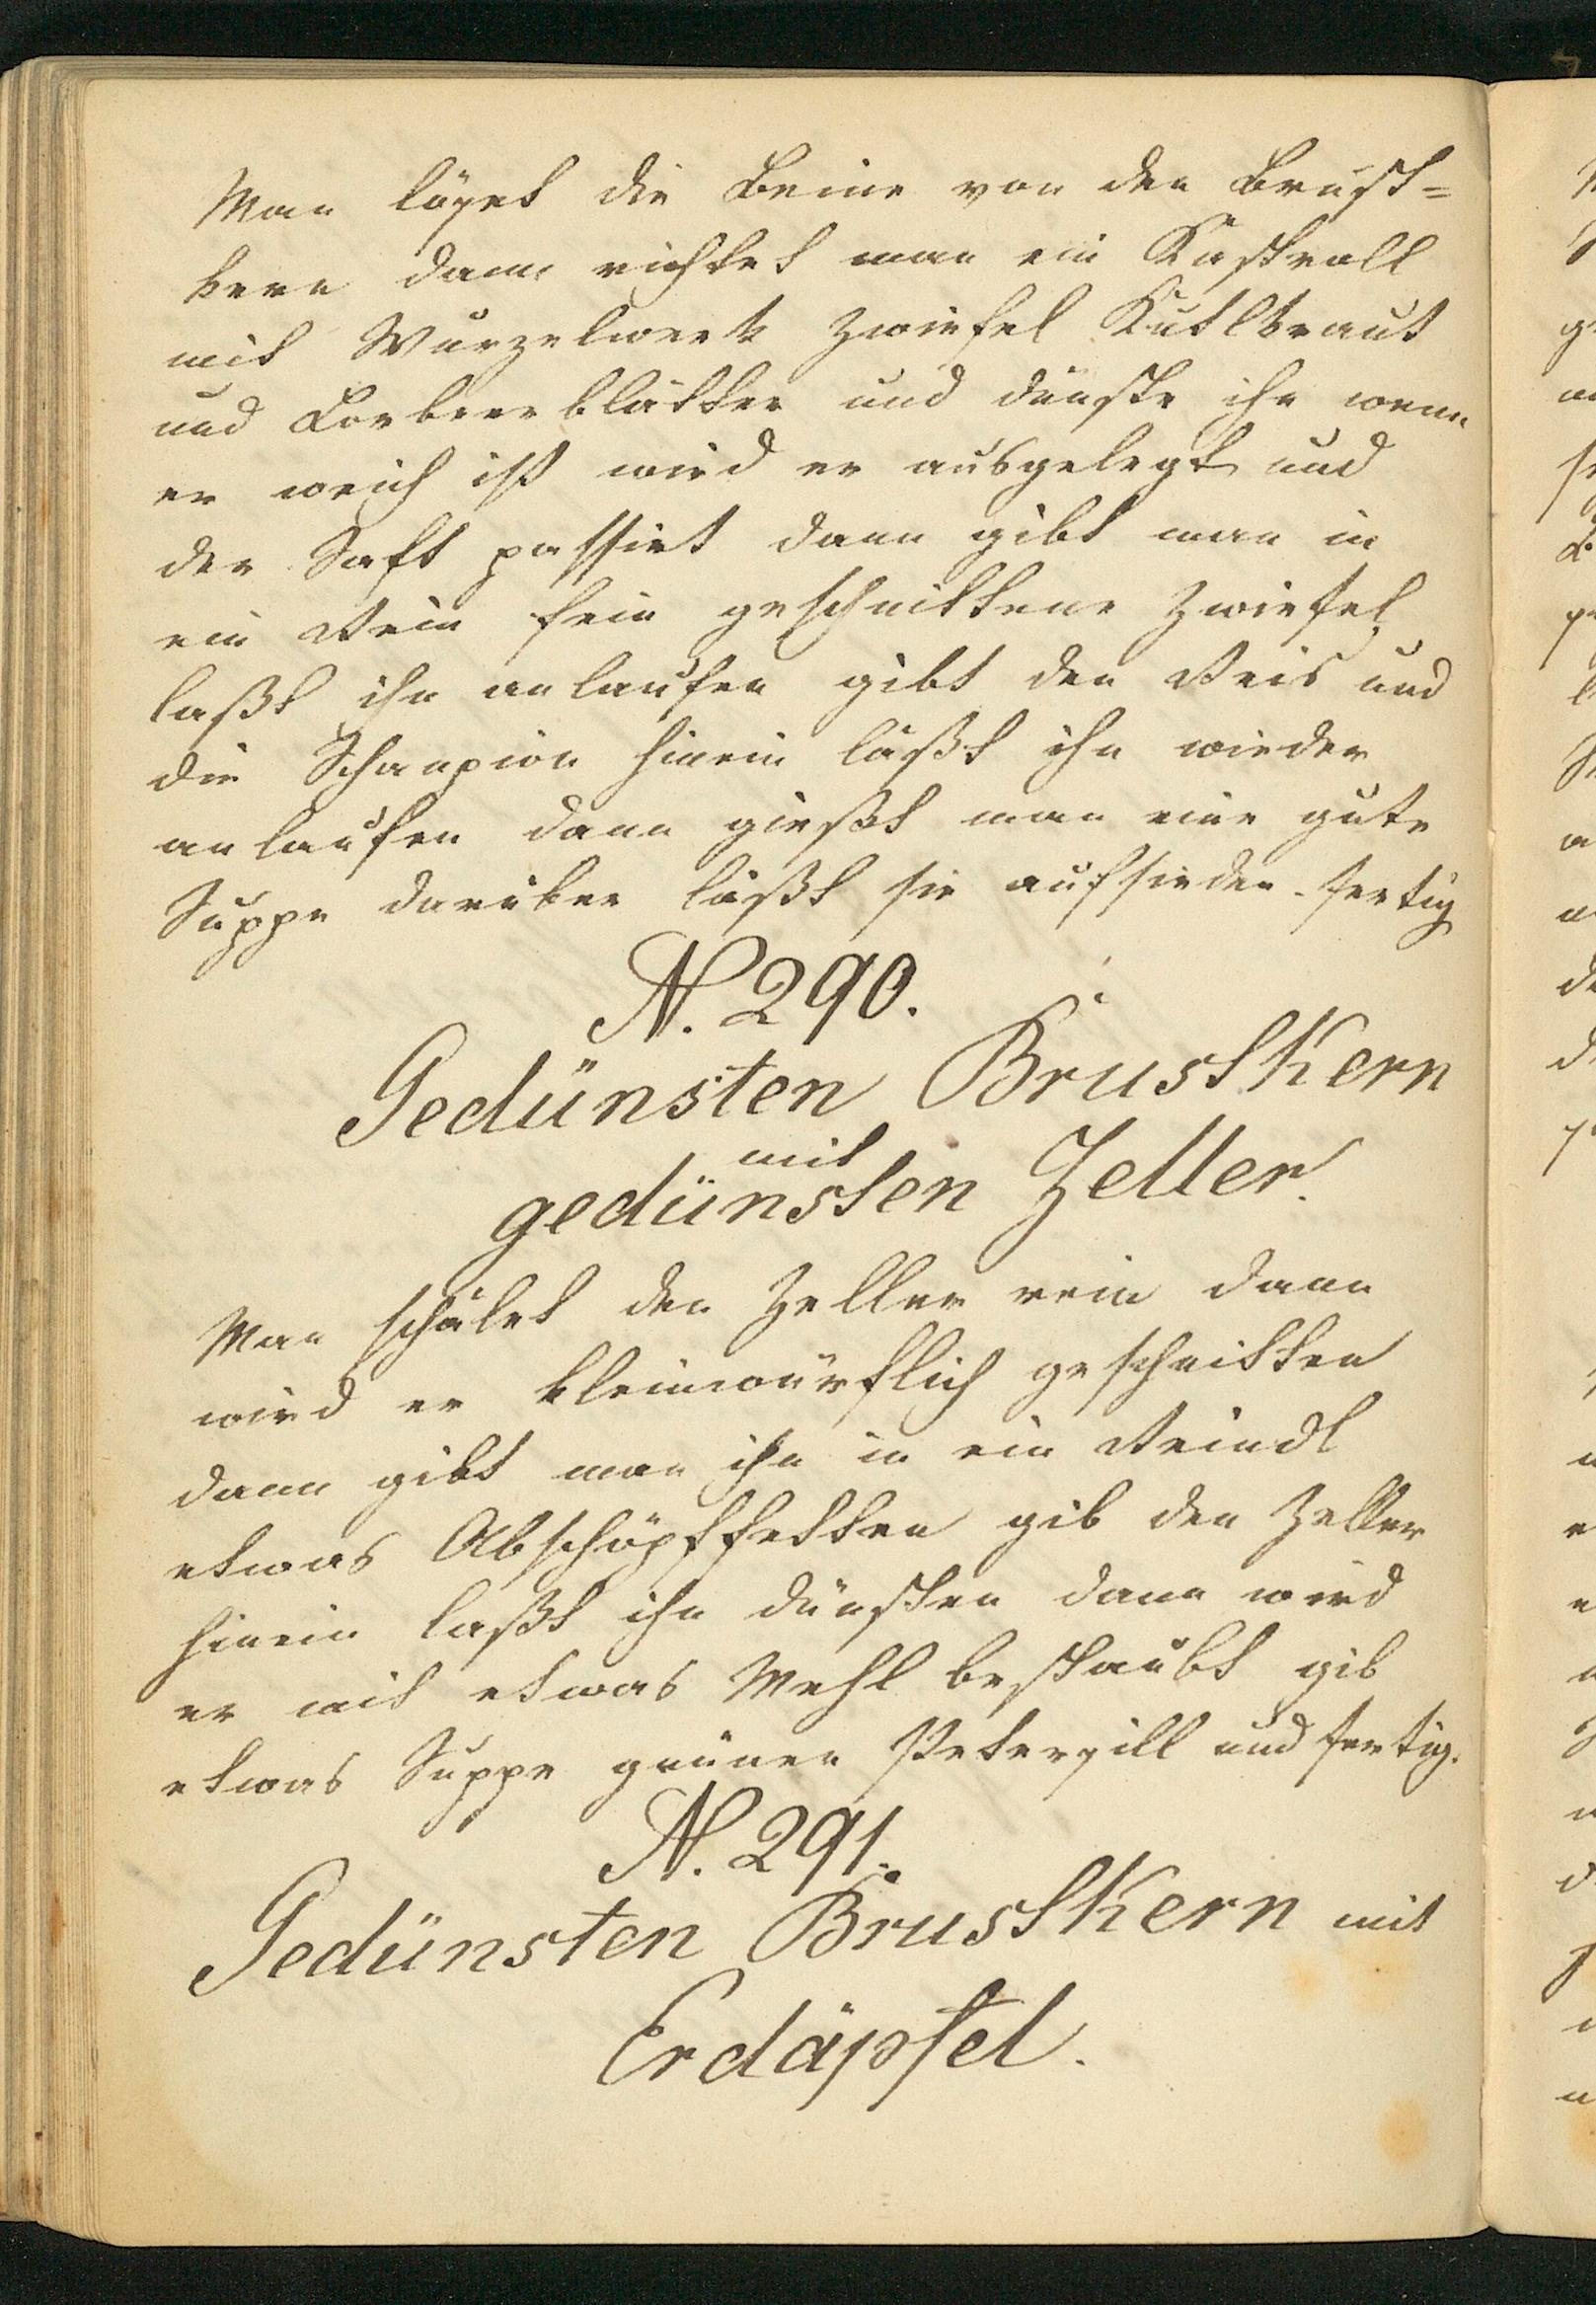 Man löset die Beine von den Brust=
kern dann richtet man ein Kastroll
mit Wurzelwerk Zwiefel Kutlkraut
und Lorbeerblätter und dünste ihn wenn
er weich ist wird er ausgelegt und
der Saft passirt dann gibt man in
ein Rein fein geschnittene Zwiefel
laßt ihn anlaufen gibt den Reis und
die Schanpion hinein läßt ihn wieder
anlaufen dann gießt man eine gute
Suppe darüber läßt sie aufsieden. fertig
N. 290.
Gedünsten Brustkern
mit
gedünsten Zeller.
Man schälet den Zeller rein dann
wird er kleinwürflich geschnitten
dann gibt man ihn in ein Reindl
etwas Abschöpffetten gib den Zeller
hinein laßt ihn dünsten dann wird
er mit etwas Mehl bestaubt gib
etwas Suppe grünen Petersill und fertig.
N. 291.
Gedünsten Brustkern mit
Erdäpfel.